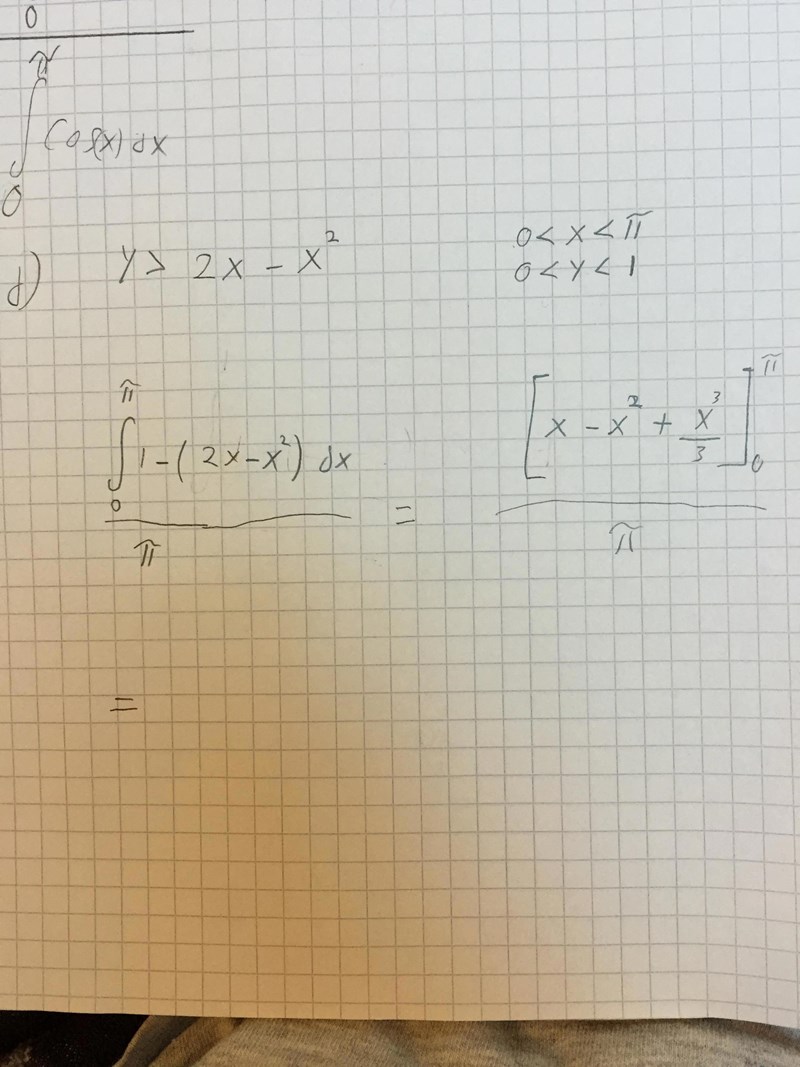 0
π
∫ cos(x) dx
0
d) y > 2x - x² 0 < x < π
0 < y < 1
π
∫ 1 - (2x - x²) dx
0
π
=
[x - x² + x³/3]
π
0
π
=